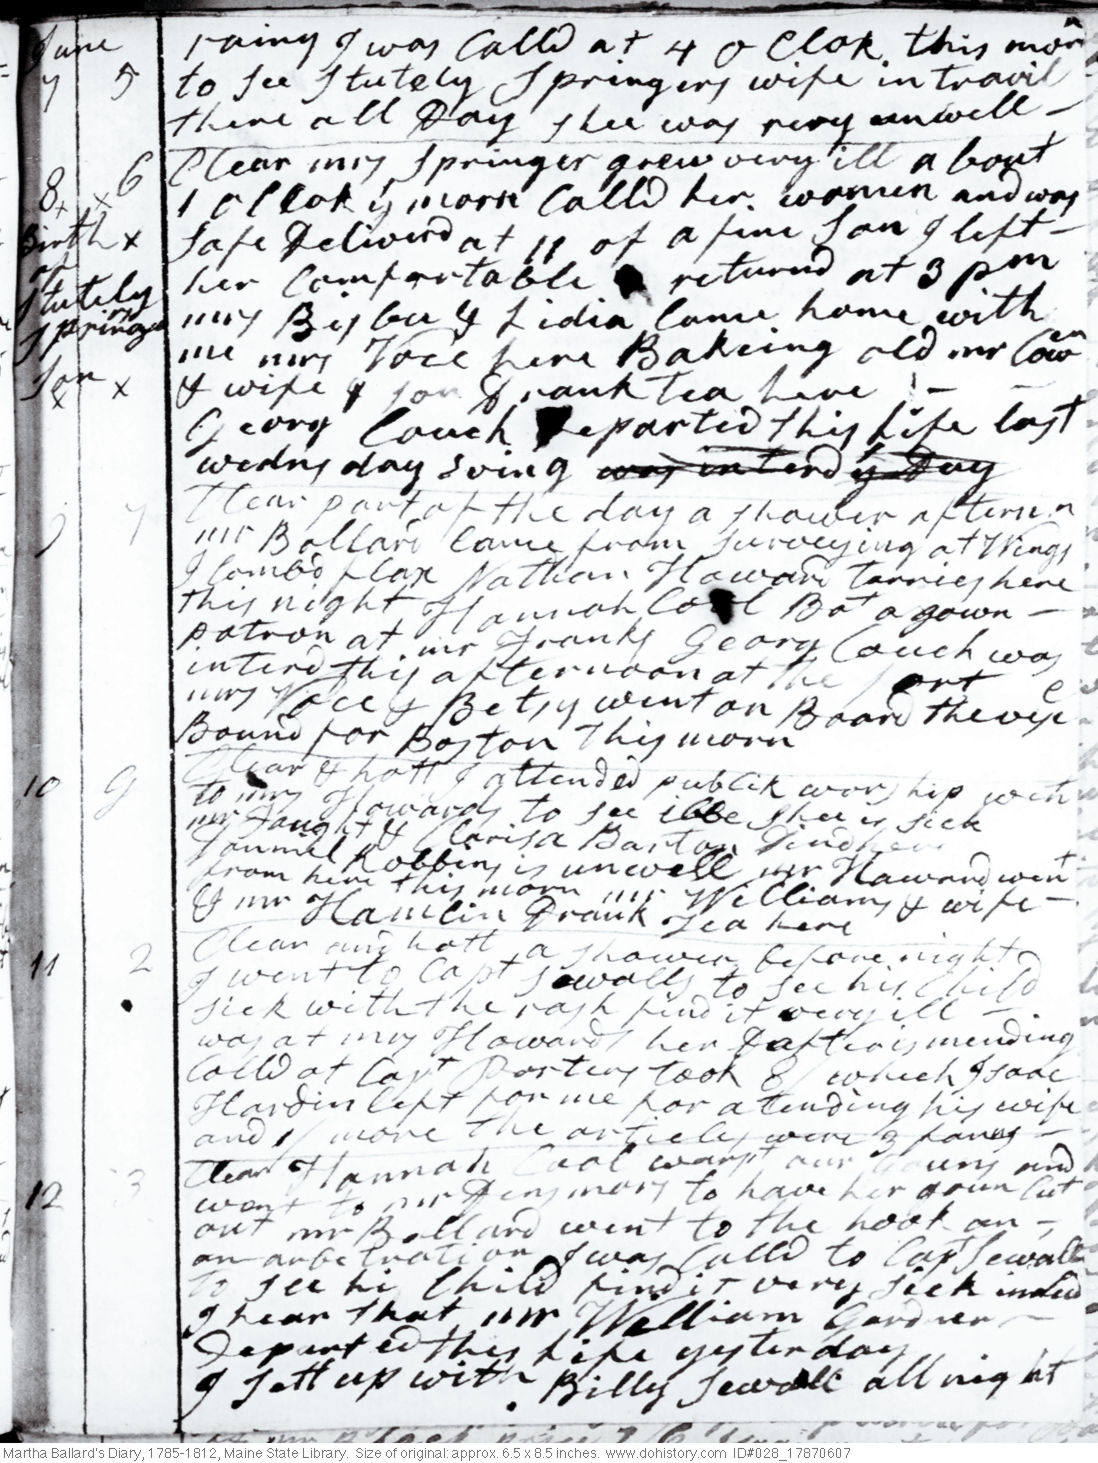 June
7 5 rainy I was Calld at 4 O Clok this morn
to See Stutely Springers wife in travil
there all Day shee was very unwell -
8 6 Clear mrs Springer grew very ill about
x x 1 O Clok ys morn Calld her women and was
Birth x Safe Deliverd at 11 of a fine Son I left -
of her Comfortable returnd at 3 pm
Stutely mrs Bisbee & Lidia Came home with
Springers me mrs Voce here Bakeing old mr Cown
Son & wife & son Drank tea here -
x x Georg Couch Departed this Life last
wednsday Eving was interd ys Day
7 Clear part of the day a shower aftern n
mr Ballard Came from Surveying at Wings
I Combd flax Nathan Haward tarries here
this night Hannah Cool Bot a gown -
patron at mr Franks Georg Couch was
interd this afternoon at the fort
mrs Voce & Betsy went on Board the
Bound for Boston this morn
10 g Clear & hott I attended publik worship went
to mrs Howards to See shee is sick
mr & Clarisa Barton Dind here
Samuel Robbins is unwell mr Haward went
from here this morn mr Williams & wife -
& mr Hamlin Drank Tea here
11 2 Clear and hott a shower before night
I went to Capt Sewalls to See his Child
Sick with the rash find it very ill -
was at mrs Howards her Dafter is mending
Calld at Capt Porters took 8/ which Isaac
Hardin left for me for atending his wife
and 1/ more the articles were 2 fanns -
12 3 Clear Hannah Cool warpt our Gouns and
went to mr Densmors to have her goun Cut
out mr Ballard went to the hook on -
an arbetration I was Calld to Capt Sewalls
to See his Child find it very Sick indeed
I hear that mr William Gardner -
Departed this Life yesterday
I Sett up with Billy Sewall all night
Martha Ballard's Diary, 1785-1812, Maine State Library. Size of original: approx. 6.5 x 8.5 inches. www.dohistory.com ID#028_17870607